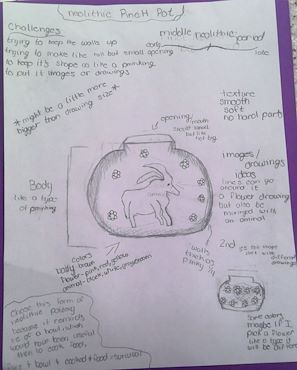 neolithic Pinch Pot
Challenges
trying to keep the walls up
trying to make like tall but small opening
to keep it's shape as like a
to put it images or drawings
middle neolithic period
early
late
*might be a little more
bigger than drawing size*
opening
mouth
small
but like
not big
texture
smooth
soft
no hard parts
images/
drawings
ideas
lines can go
around it
a flower drawing
but also be
with
an animal
Body
like a type
of
colors
body brown
flower-pink, red, yellow
animal-black, white, grey, brown
walls
thick as
pinky
2nd
different
drawings
some colors
maybe if I
pick a flower
like a type it
will be different
choose this form of
neolithic pottery
because it reminds
of a bowl which
would have been useful
them to cook food,
bowl + cooked + food